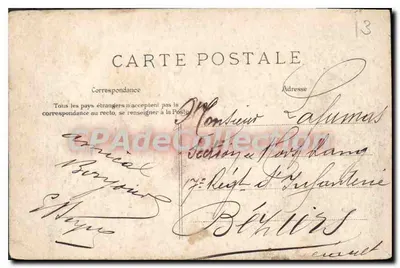 13
CARTE POSTALE
Correspondance
Adresse
Tous les pays étrangers n'acceptent pas la
correspondance au recto, se renseigner à la Poste
amical
Bonjour
Monsieur
Section de Hors Rang
7e Régt d'Infanterie
Béziers
Hérault
CPADeCollection